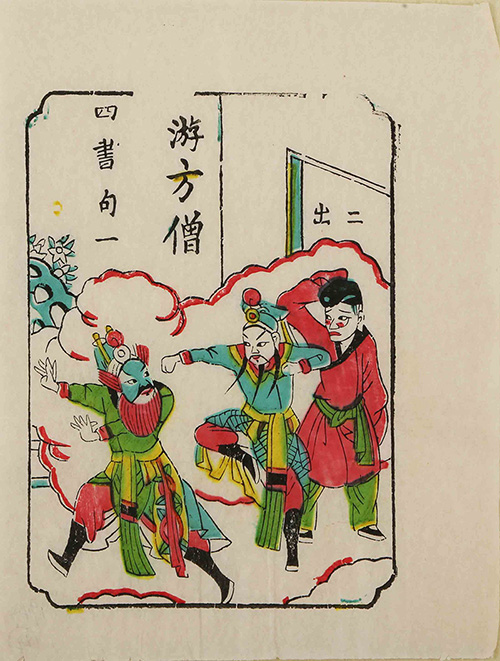 二出
游方僧
四書句一